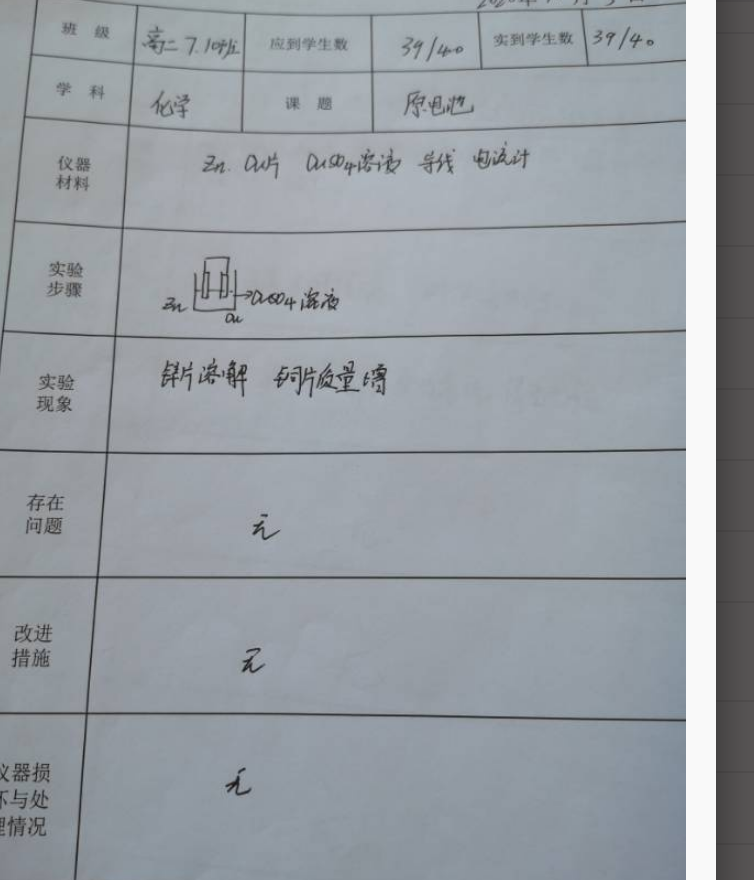 班 级 高二7.10班 应到学生数 39/40 实到学生数 39/40
学 科 化学 课 题 原电池
仪器
材料
Zn. Cu片 CuSO4溶液 导线 电流计
实验
步骤
Zn Cu CuSO4溶液
实验
现象
锌片溶解 铜片质量增
存在
问题
无
改进
措施
无
仪器损
坏与处
理情况
无